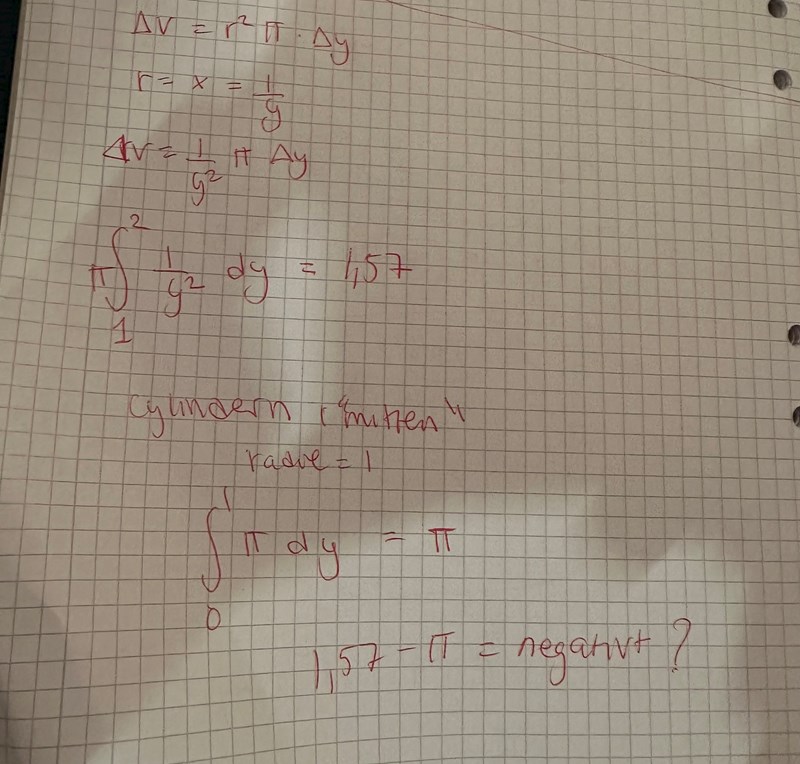 ΔV = r² π · Δy
r = x = 1/y
ΔV = 1/y² π Δy
π ∫₁² 1/y² dy = 1,57
Cylindern i "mitten"
radie = 1
∫₀¹ π dy = π
1,57 - π = negativt ?